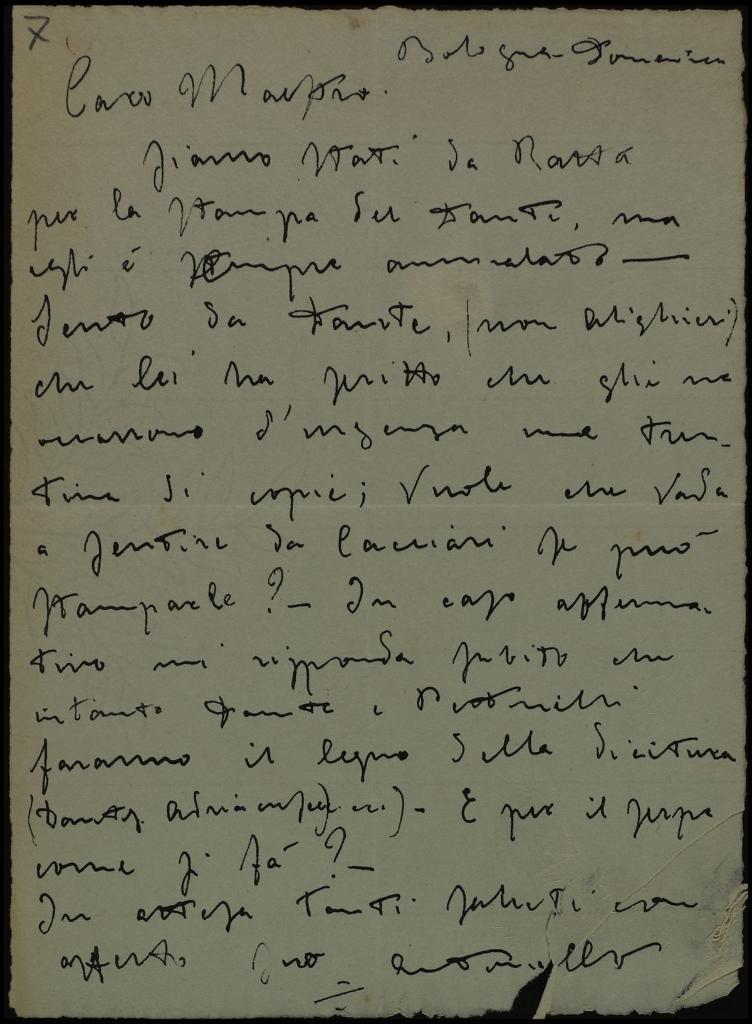 7
Bologna - Domenica
Caro Maestro.
Siamo stati da Ratta
per la stampa del Dante, ma
egli è sempre ammalato —
Sento da Dante, (non Alighieri)
che lei ha scritto che gliene
occorrono d'urgenza una tren-
tina di copie; Vuole che vada
a sentire da Cacciari se può
stamparle? - In caso afferma-
tivo mi risponda subito che
intanto Dante e
faranno il legno della dicitura
(Dantes Adriacus ecc.) - E per il serpe
come si fà? -
In attesa tanti saluti con
affetto suo Antonello